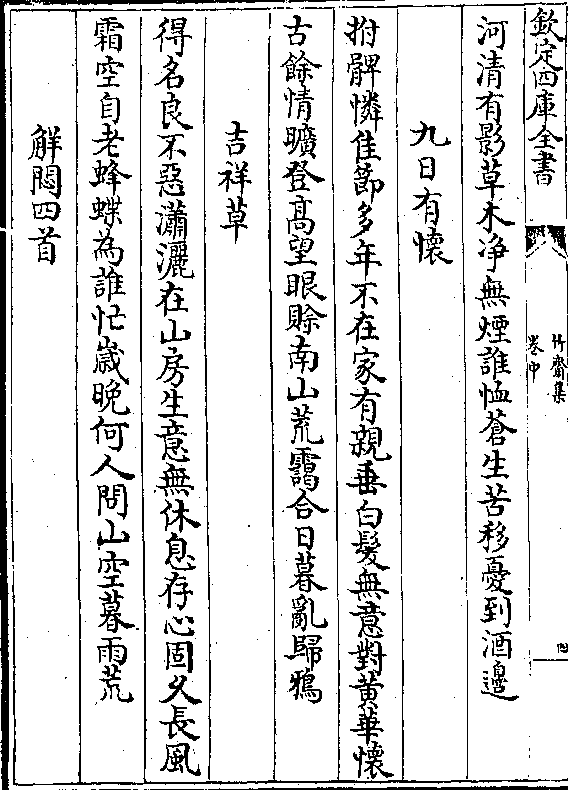 欽定四庫全書
竹齋集
卷中
四
河清有影草木浄無煙誰恤蒼生苦移憂到酒邊
九日有懷
拊髀憐佳節多年不在家有親垂白髮無意對黃華懷
古餘情曠登高望眼賒南山荒靄合日暮亂歸鴉
吉祥草
得名良不惡瀟灑在山房生意無休息存心固久長風
霜空自老蜂蝶為誰忙嵗晚何人問山空暮雨荒
解悶四首